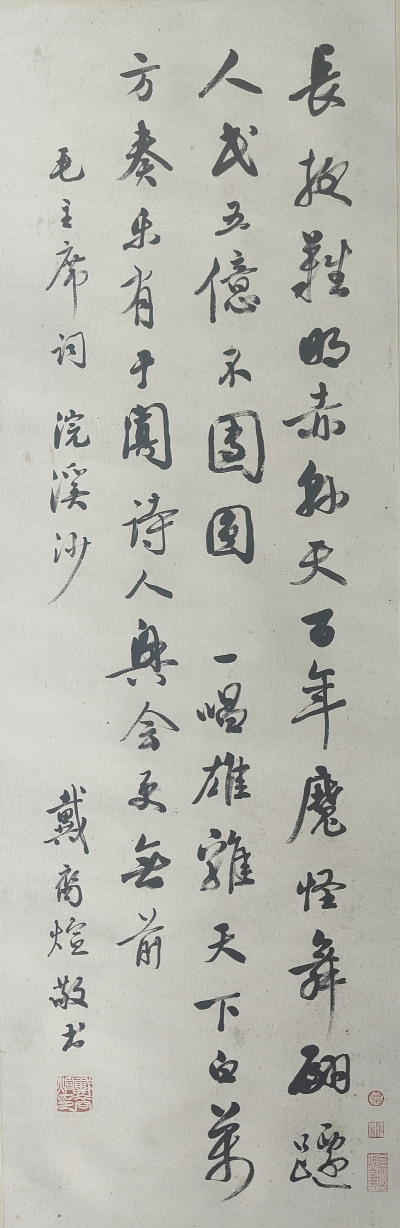 長夜難明赤縣天百年魔怪舞翩躚
人民五億不團圓 一唱雄雞天下白萬
方奏乐有于闐詩人興会更無前
毛主席詞 浣溪沙 戴裔煊敬书